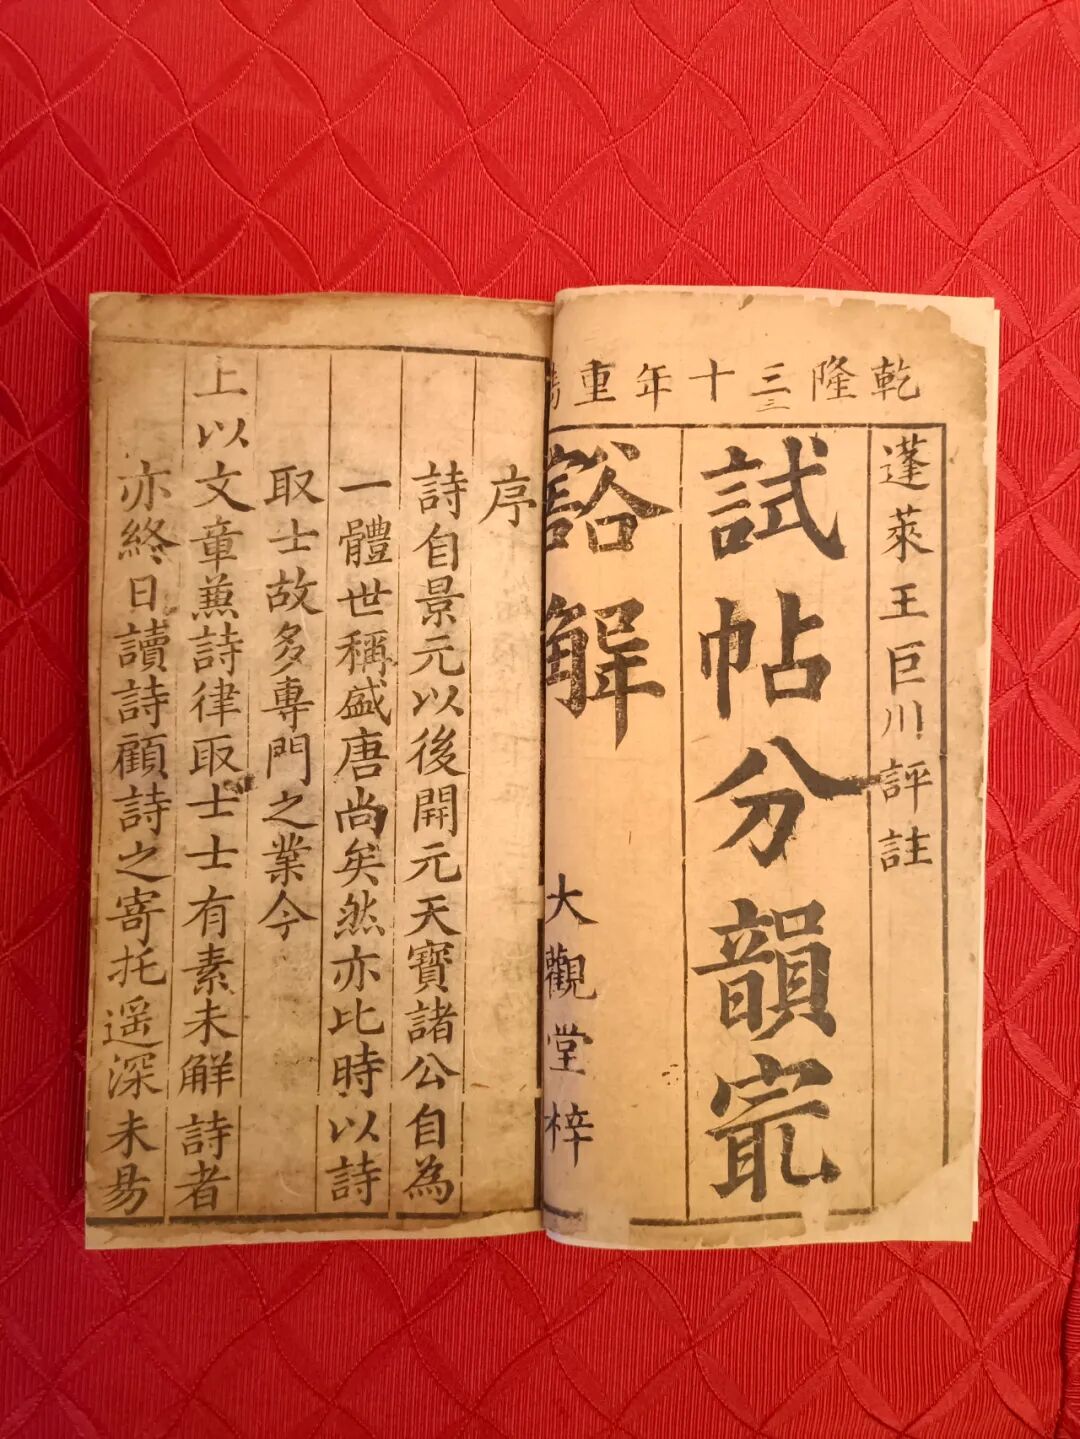 乾隆三十年重鐫
蓬萊王巨川評註
試帖分韻㝡
豁觧
大觀堂梓
序
詩自景元以後開元天寶諸公自為
一體世稱盛唐尚矣然亦比時以詩
取士故多專門之業今
上以文章兼詩律取士士有素未觧詩者
亦終日讀詩顧詩之寄托遥深未易